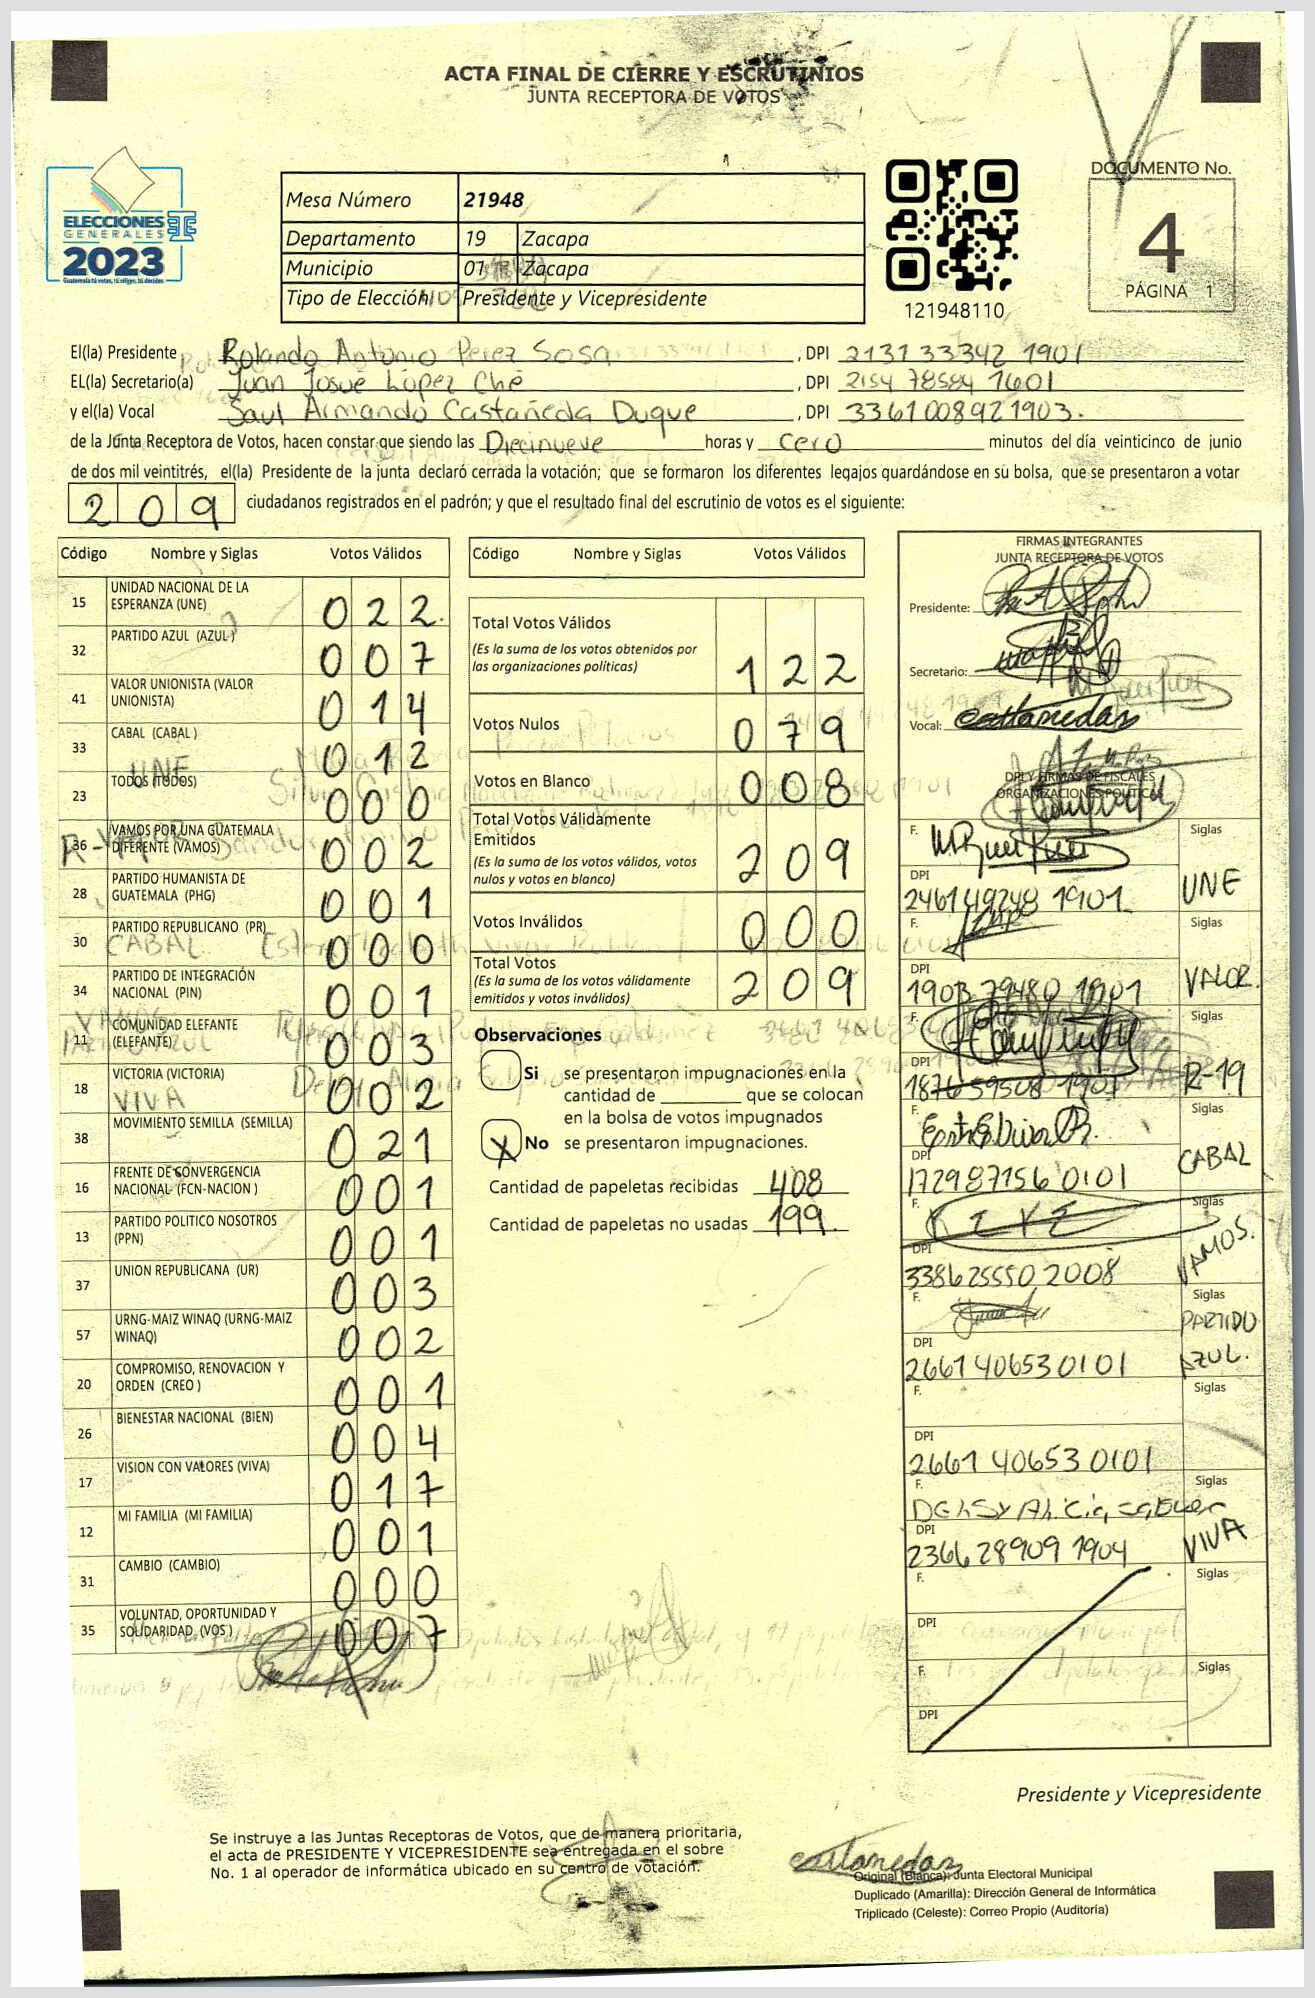 ACTA FINAL DE CIERRE Y ESCRUTINIOS
JUNTA RECEPTORA DE VOTOS
ELECCIONES
GENERALES
2023
Guatemala tú votas, tú eliges, tú decides
Mesa Número 21948
Departamento 19 Zacapa
Municipio 01 Zacapa
Tipo de Elección Presidente y Vicepresidente
121948110
DOCUMENTO No.
4
PÁGINA 1
El(la) Presidente Rolando Antonio Perez Sosa, DPI 2131 33342 1901
EL(la) Secretario(a) Juan Josue López Ché, DPI 2154 78584 1601
y el(la) Vocal Saul Armando Castañeda Duque, DPI 3361008921903.
de la Junta Receptora de Votos, hacen constar que siendo las Diecinueve horas y cero minutos del día veinticinco de junio
de dos mil veintitrés, el(la) Presidente de la junta declaró cerrada la votación; que se formaron los diferentes legajos guardándose en su bolsa, que se presentaron a votar
209 ciudadanos registrados en el padrón; y que el resultado final del escrutinio de votos es el siguiente:
Código Nombre y Siglas Votos Válidos
15 UNIDAD NACIONAL DE LA ESPERANZA (UNE) 022
32 PARTIDO AZUL (AZUL) 007
41 VALOR UNIONISTA (VALOR UNIONISTA) 014
33 CABAL (CABAL ) 012
23 TODOS (TODOS) 000
36 VAMOS POR UNA GUATEMALA DIFERENTE (VAMOS) 002
28 PARTIDO HUMANISTA DE GUATEMALA (PHG) 001
30 PARTIDO REPUBLICANO (PR) 000
34 PARTIDO DE INTEGRACIÓN NACIONAL (PIN) 001
11 COMUNIDAD ELEFANTE (ELEFANTE) 003
18 VICTORIA (VICTORIA) 002
38 MOVIMIENTO SEMILLA (SEMILLA) 021
16 FRENTE DE CONVERGENCIA NACIONAL (FCN-NACION ) 001
13 PARTIDO POLITICO NOSOTROS (PPN) 001
37 UNION REPUBLICANA (UR) 003
57 URNG-MAIZ WINAQ (URNG-MAIZ WINAQ) 002
20 COMPROMISO, RENOVACION Y ORDEN (CREO ) 001
26 BIENESTAR NACIONAL (BIEN) 004
17 VISION CON VALORES (VIVA) 017
12 MI FAMILIA (MI FAMILIA) 001
31 CAMBIO (CAMBIO) 000
35 VOLUNTAD, OPORTUNIDAD Y SOLIDARIDAD (VOS ) 007
Código Nombre y Siglas Votos Válidos
Total Votos Válidos 122
(Es la suma de los votos obtenidos por
las organizaciones políticas)
Votos Nulos 079
Votos en Blanco 008
Total Votos Válidamente
Emitidos 209
(Es la suma de los votos válidos, votos
nulos y votos en blanco)
Votos Inválidos 000
Total Votos 209
(Es la suma de los votos válidamente
emitidos y votos inválidos)
Observaciones
Si se presentaron impugnaciones en la
cantidad de ________ que se colocan
en la bolsa de votos impugnados
X No se presentaron impugnaciones.
Cantidad de papeletas recibidas 408
Cantidad de papeletas no usadas 199.
FIRMAS INTEGRANTES
JUNTA RECEPTORA DE VOTOS
Presidente:
Secretario:
Vocal: Castañedas
DPI Y FIRMAS DE FISCALES
ORGANIZACIONES POLITICAS
F. Siglas
DPI UNE
2461 49248 1901
F. Siglas
DPI VALOR.
1903 79480 1901
F. Siglas
DPI R-19
1876 59508 1901
F. Siglas
DPI CABAL
1729871560101
F. Siglas
DPI VAMOS.
3386255502008
F. Siglas
DPI PARTIDO AZUL.
2661 40653 0101
F. Siglas
DPI
2661 40653 0101
F. Siglas
DPI VIVA
2366 28909 1904
F. Siglas
DPI
F. Siglas
DPI
Presidente y Vicepresidente
Se instruye a las Juntas Receptoras de Votos, que de manera prioritaria,
el acta de PRESIDENTE Y VICEPRESIDENTE sea entregada en el sobre
No. 1 al operador de informática ubicado en su centro de votación.
Castañedas
Original (Blanca): Junta Electoral Municipal
Duplicado (Amarilla): Dirección General de Informática
Triplicado (Celeste): Correo Propio (Auditoría)